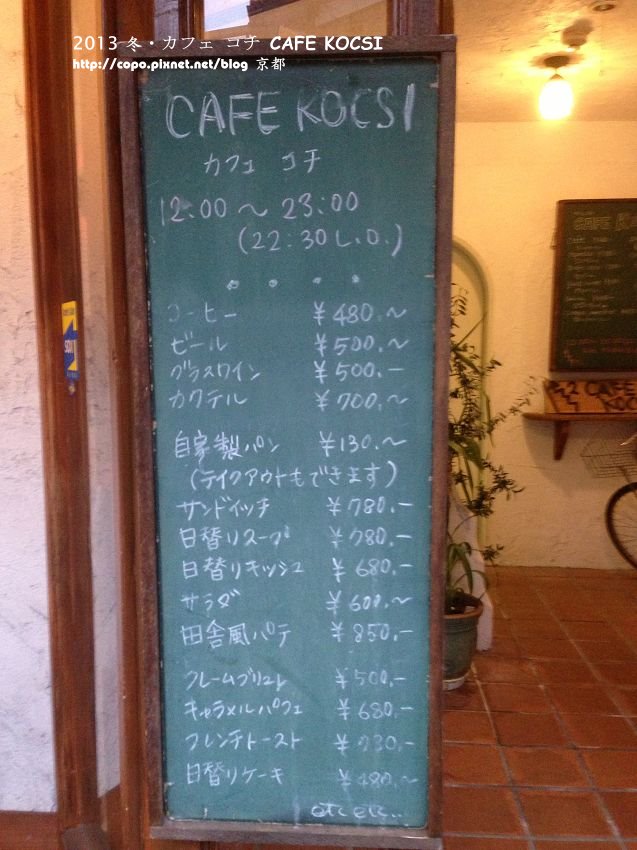 2013 冬・カフェ コチ CAFE KOCSI
http://copo.pixnet.net/blog 京都
CAFE KOCSI
カフェ コチ
12:00 ～ 23:00
(22:30 L.O.)
コーヒー ¥480.～
ビール ¥500.～
グラスワイン ¥500.-
カクテル ¥700.～
自家製パン ¥130.～
(テイクアウトもできます)
サンドイッチ ¥780.-
日替りスープ ¥780.-
日替りキッシュ ¥680.-
サラダ ¥600.～
田舎風パテ ¥850.-
クレームブリュレ ¥500.-
キャラメルパフェ ¥680.-
フレンチトースト ¥730.-
日替りケーキ ¥480.～
etc etc...
CAFE
CAFE
KOC